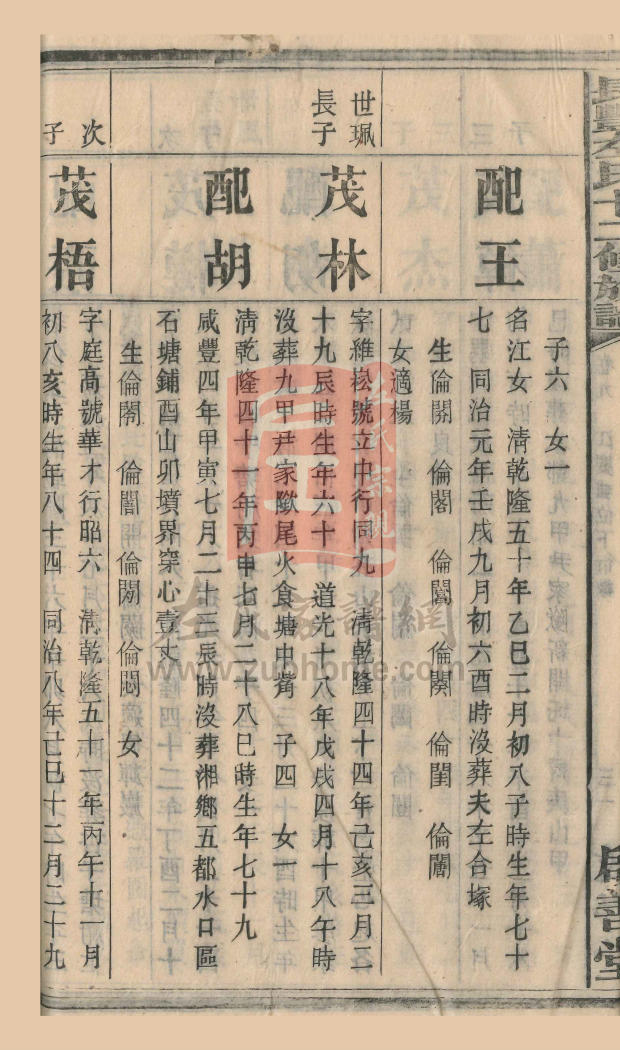 長豐左氏十二修族譜
卷九
三一
啟善堂
子六　女一
配王
名江女　清乾隆五十年乙巳二月初八子時生年七十
七　同治元年壬戌九月初六酉時沒葬夫左合塚
生倫　倫閣　倫　倫　倫閨　倫
女適楊
世珮
長子
茂林
字維崧號立中行同九　清乾隆四十四年己亥三月二
十九辰時生年六十　道光十八年戊戌四月十八午時
沒葬九甲尹家歐尾火食塘中嘴　子四　女一
配胡
清乾隆四十一年丙申七月二十八巳時生年七十九
咸豐四年甲寅七月二十三辰時沒葬湘鄉五都水口區
石塘鋪酉山卯墳界穿心壹丈
生倫　倫闇　倫　倫　女
次子
茂梧
字庭高號華才行昭六　清乾隆五十一年丙午十一月
初八亥時生年八十四　同治八年己巳十二月二十九
左氏家譜網
www.zuohome.com